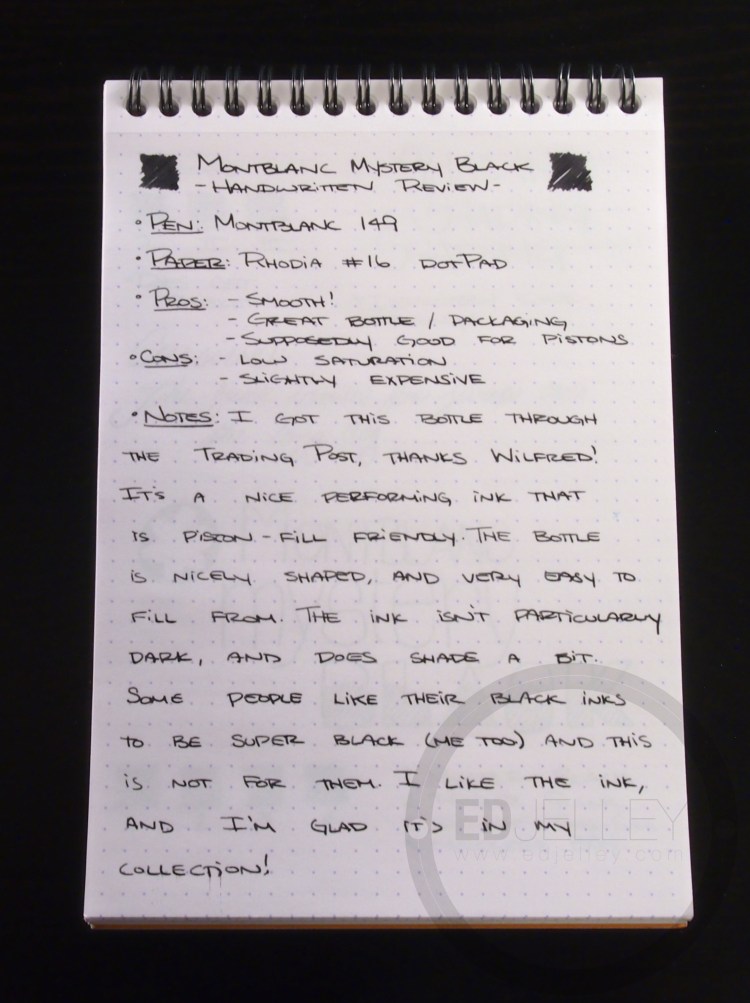 MONTBLANC MYSTERY BLACK
- HANDWRITTEN REVIEW -
• PEN: MONTBLANC 149
• PAPER: RHODIA #16 DOTPAD
• PROS: - SMOOTH!
- GREAT BOTTLE / PACKAGING
- SUPPOSEDLY GOOD FOR PISTONS
• CONS: - LOW SATURATION
- SLIGHTLY EXPENSIVE
• NOTES: I GOT THIS BOTTLE THROUGH
THE TRADING POST, THANKS WILFRED!
IT'S A NICE PERFORMING INK THAT
IS PISTON-FILL FRIENDLY. THE BOTTLE
IS NICELY SHAPED, AND VERY EASY TO
FILL FROM. THE INK ISN'T PARTICULARLY
DARK, AND DOES SHADE A BIT.
SOME PEOPLE LIKE THEIR BLACK INKS
TO BE SUPER BLACK (ME TOO) AND THIS
IS NOT FOR THEM. I LIKE THE INK,
AND I'M GLAD IT'S IN MY
COLLECTION!
EDJELLEY
www.edjelley.com